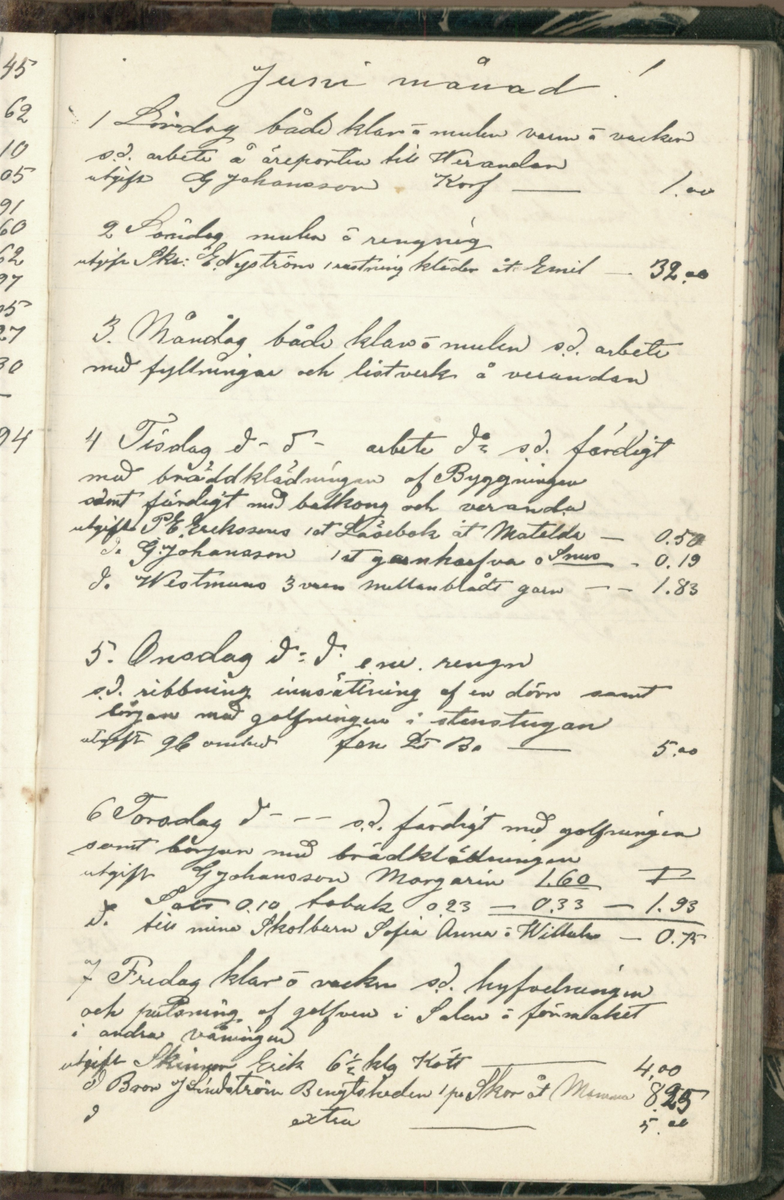 45
62
10
05
91
60
62
97
05
27
30
94
Juni månad!
1 Lördag både klar o mulen varm o vacker
s.d. arbete å åreporten till Werandan
utgift G Johansson Korf — 1.00
2 Söndag mulen o rengnig
utgift Skr: E. Nyström 1 rustning kläder åt Emil — 32.00
3. Måndag både klar o mulen s.d. arbete
med fyllningar och listverk å verandan
4 Tisdag d- d- arbete do s.d. färdigt
med bräddklädningen af Byggningen
samt färdigt med balkong och veranda
utgift P.E. Eriksons 1 st Läsebok åt Matilda — 0.50
d. G. Johansson 1 st garnharfva o Snus - 0.19
d. Westmans 3 mellanblådt garn - - 1.83
5. Onsdag d: d: rengn
s.d. ribbning innsättning af en dörr samt
början med golfningen i stenstugan
utgift 5.00
6 Torsdag d - - - s.d. färdigt med golfningen
samt början med brädklädningen
utgift G Johansson Margarin 1.60
d. 0.10 tobak 0.23 — 0.33 — 1.93
till mina Skolbarn Sofia Anna o Wilhelm — 0.75
7 Fredag klar o vacker s.d. hyfvelningen
och putsning af golfven i Salen o förmaket
i andra våningen
utgift Skinnar Erik 6½ klg Kött — 4.00
d Bror J Lindström Bengtsheden 1 par Skor åt Mamma 8.25
d extra — 5.00